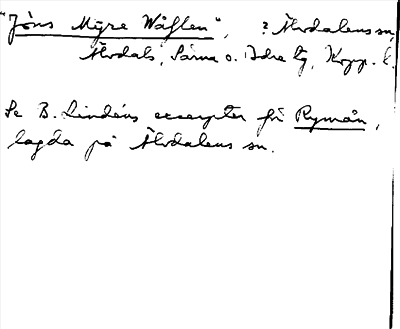 "Jöns Myre Wåhlen", ? Älvdalens sn,
Älvdals, Särna o. Idre tg, Kopp. l.
Se B. Lindéns excerpter från Rymån,
lagda på Älvdalens sn.